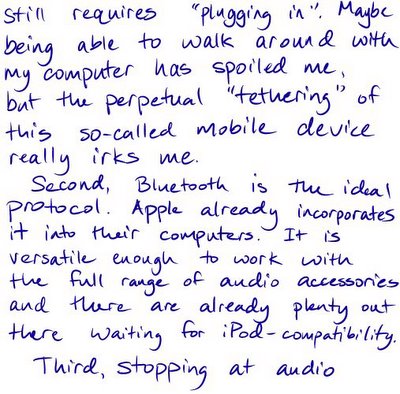 still requires "plugging in". Maybe
being able to walk around with
my computer has spoiled me,
but the perpetual "tethering" of
this so-called mobile device
really irks me.
Second, Bluetooth is the ideal
protocol. Apple already incorporates
it into their computers. It is
versatile enough to work with
the full range of audio accessories
and there are already plenty out
there waiting for iPod-compatibility.
Third, stopping at audio